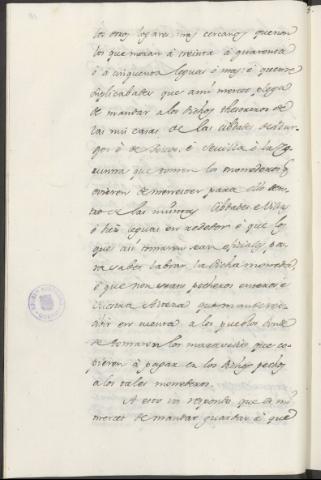 los otros logares mas cercanos quieran
los que moran á treinta á quarenta
ó á cinquenta leguas ó mas: é quense
suplicabades que ami mercet plega
de mandar a los dichos thesoreros de
las mis casas de las cibdades de Bur-
gos é de Sevilla é la Co-
ruña que tomen los monederos q
ovieren de menester para ello den-
tro de las mismas cibdades é Villas
leguas en rededor: é que los
que asi tomaren sean oficiales, pa-
ra saber labrar la dicha moneda,
é que non sean pecheros enteros é
cuenta que mande re-
cibir en cuenta a los pueblos donde
se tomaren los maravedis que co-
pieren á pagar en los dichos pechos
a los tales monederos.
A esto vos respondo que es mi
mercet de mandar guardar é que